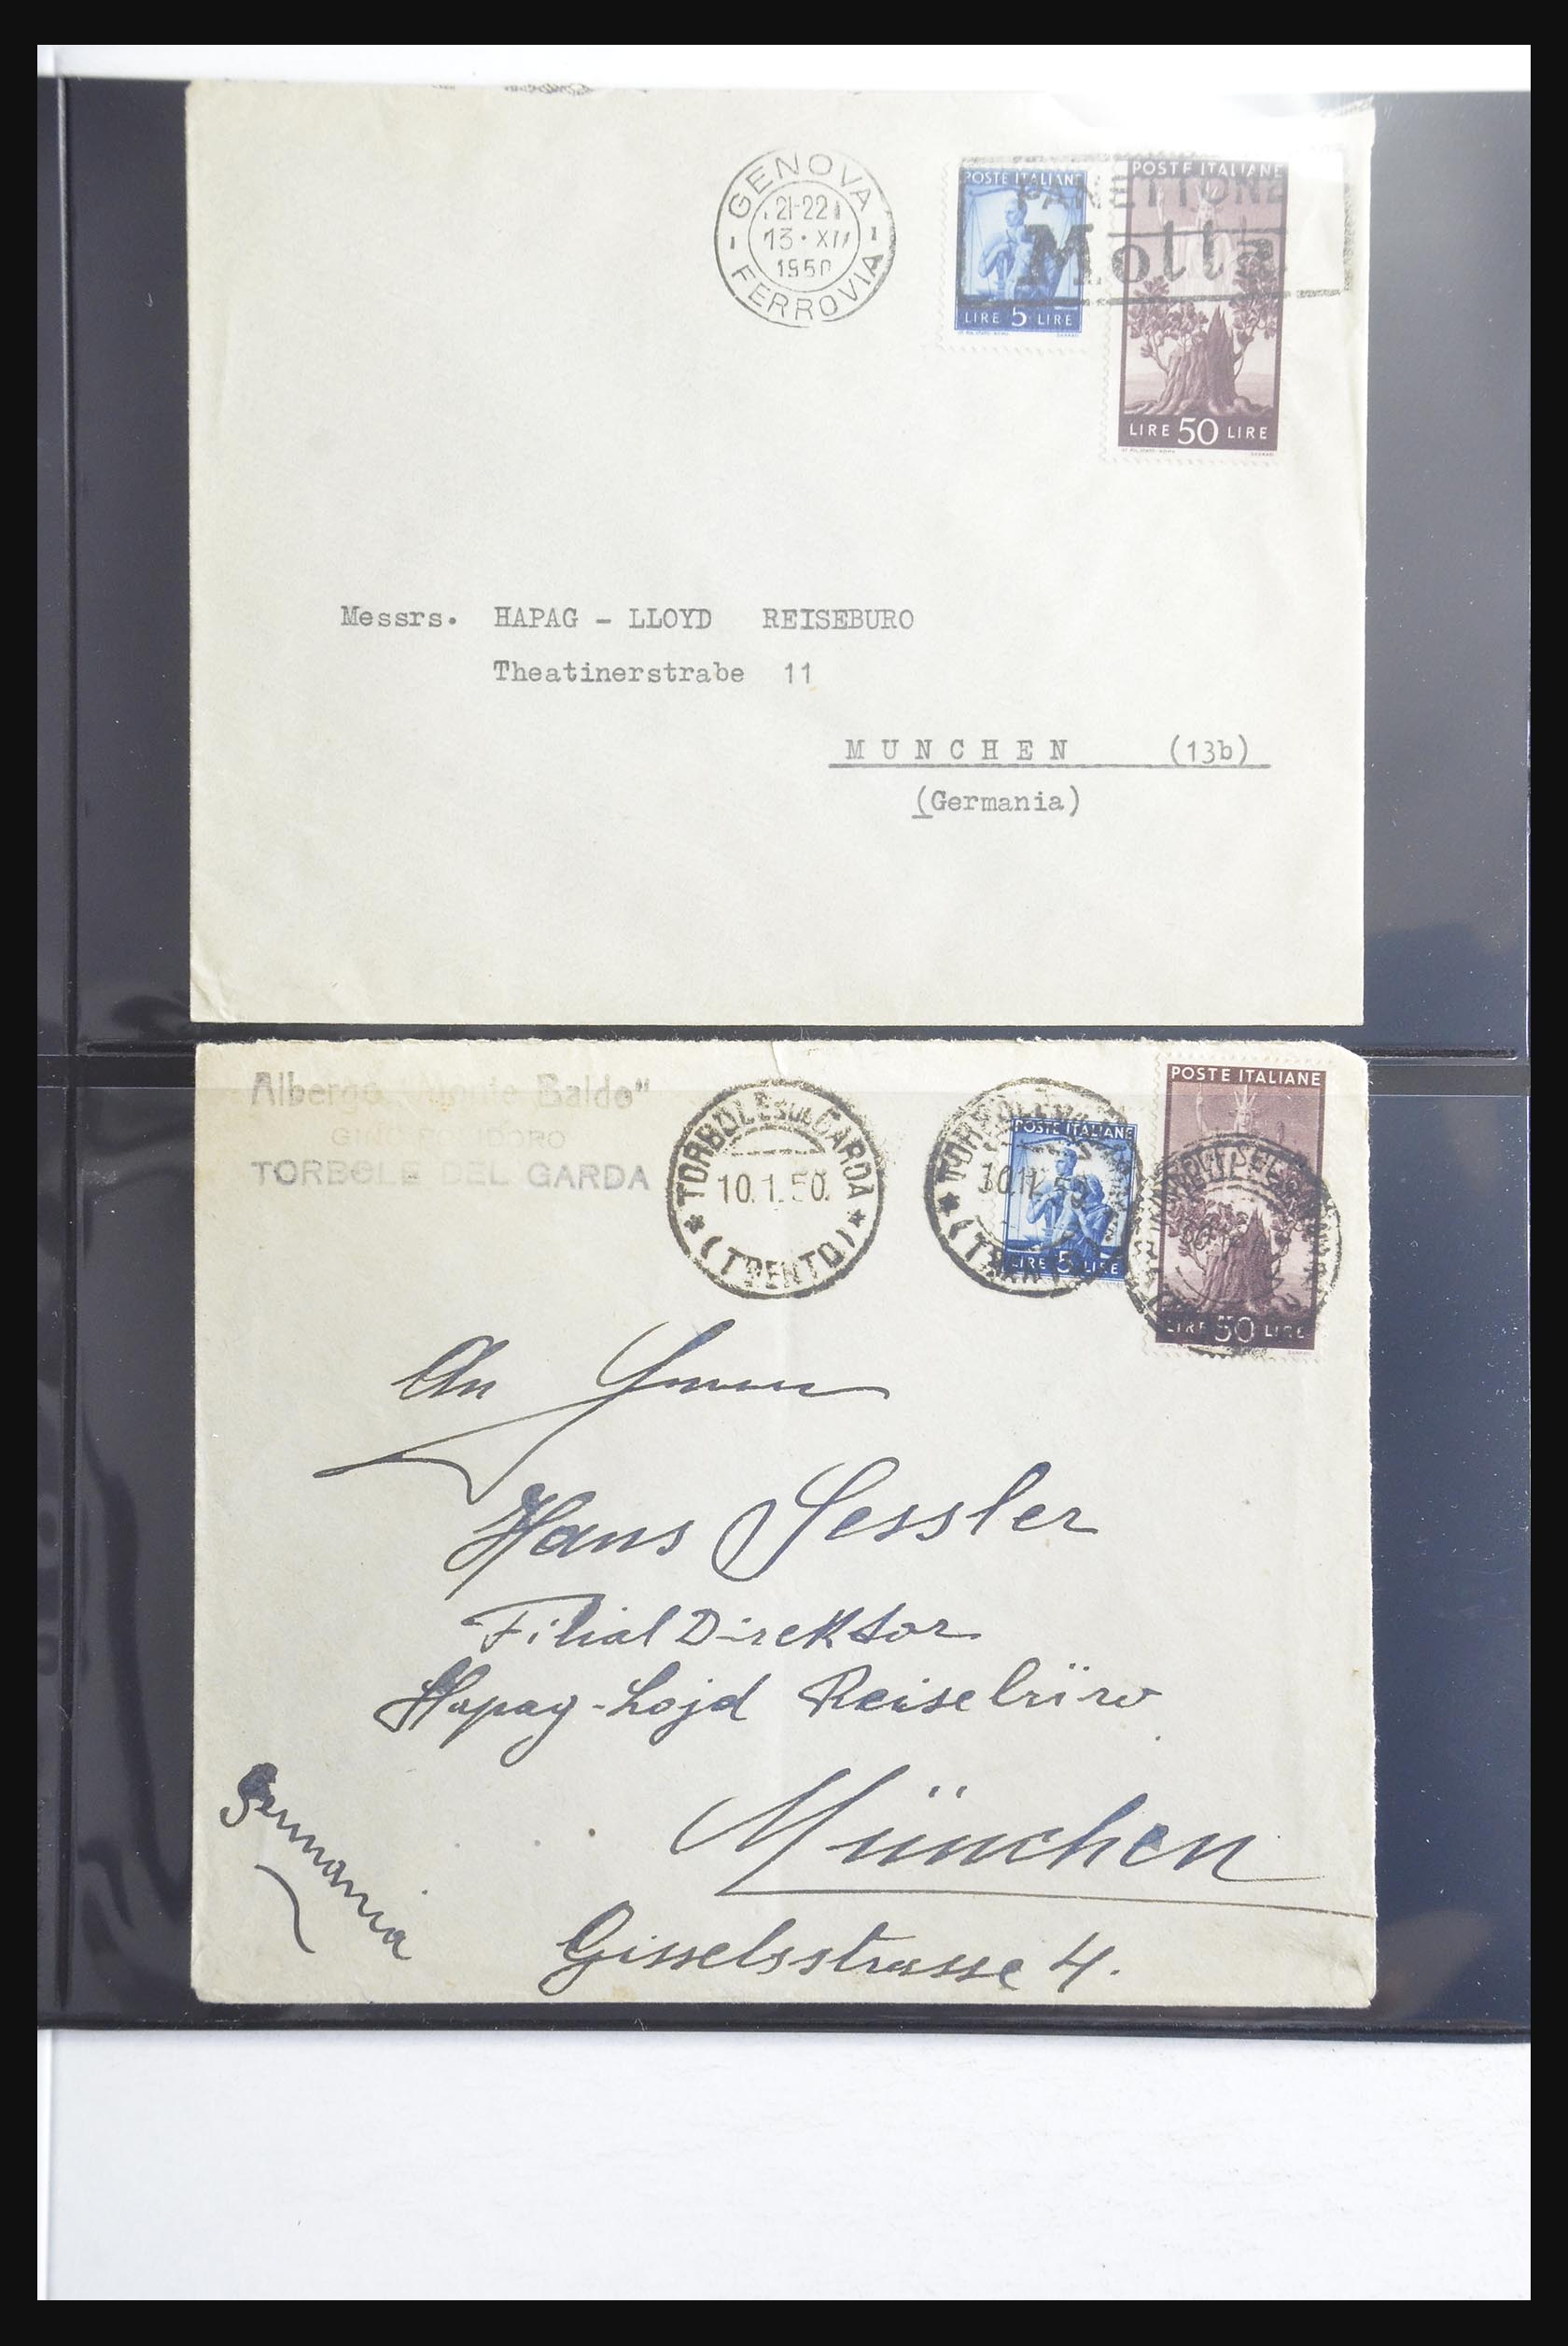 GENOVA
21-22
13·XII
1950
FERROVIA
POSTE ITALIANE
LIRE 5 LIRE
POSTE ITALIANE
LIRE 50 LIRE
PANETTONE
Motta
Messrs. HAPAG - LLOYD REISEBURO
Theatinerstrabe 11
MUNCHEN (13b)
(Germania)
Albergo "Monte Baldo"
GINO
TORBOLE DEL GARDA
TORBOLE SUL GARDA
10.1.50.
(TRENTO)
POSTE ITALIANE
LIRE 5 LIRE
POSTE ITALIANE
LIRE 50 LIRE
An
Hans Sessler
Filial Direktor
Hapag-Lojd Reisebüro
München
Germania
Gisselsstrasse 4.